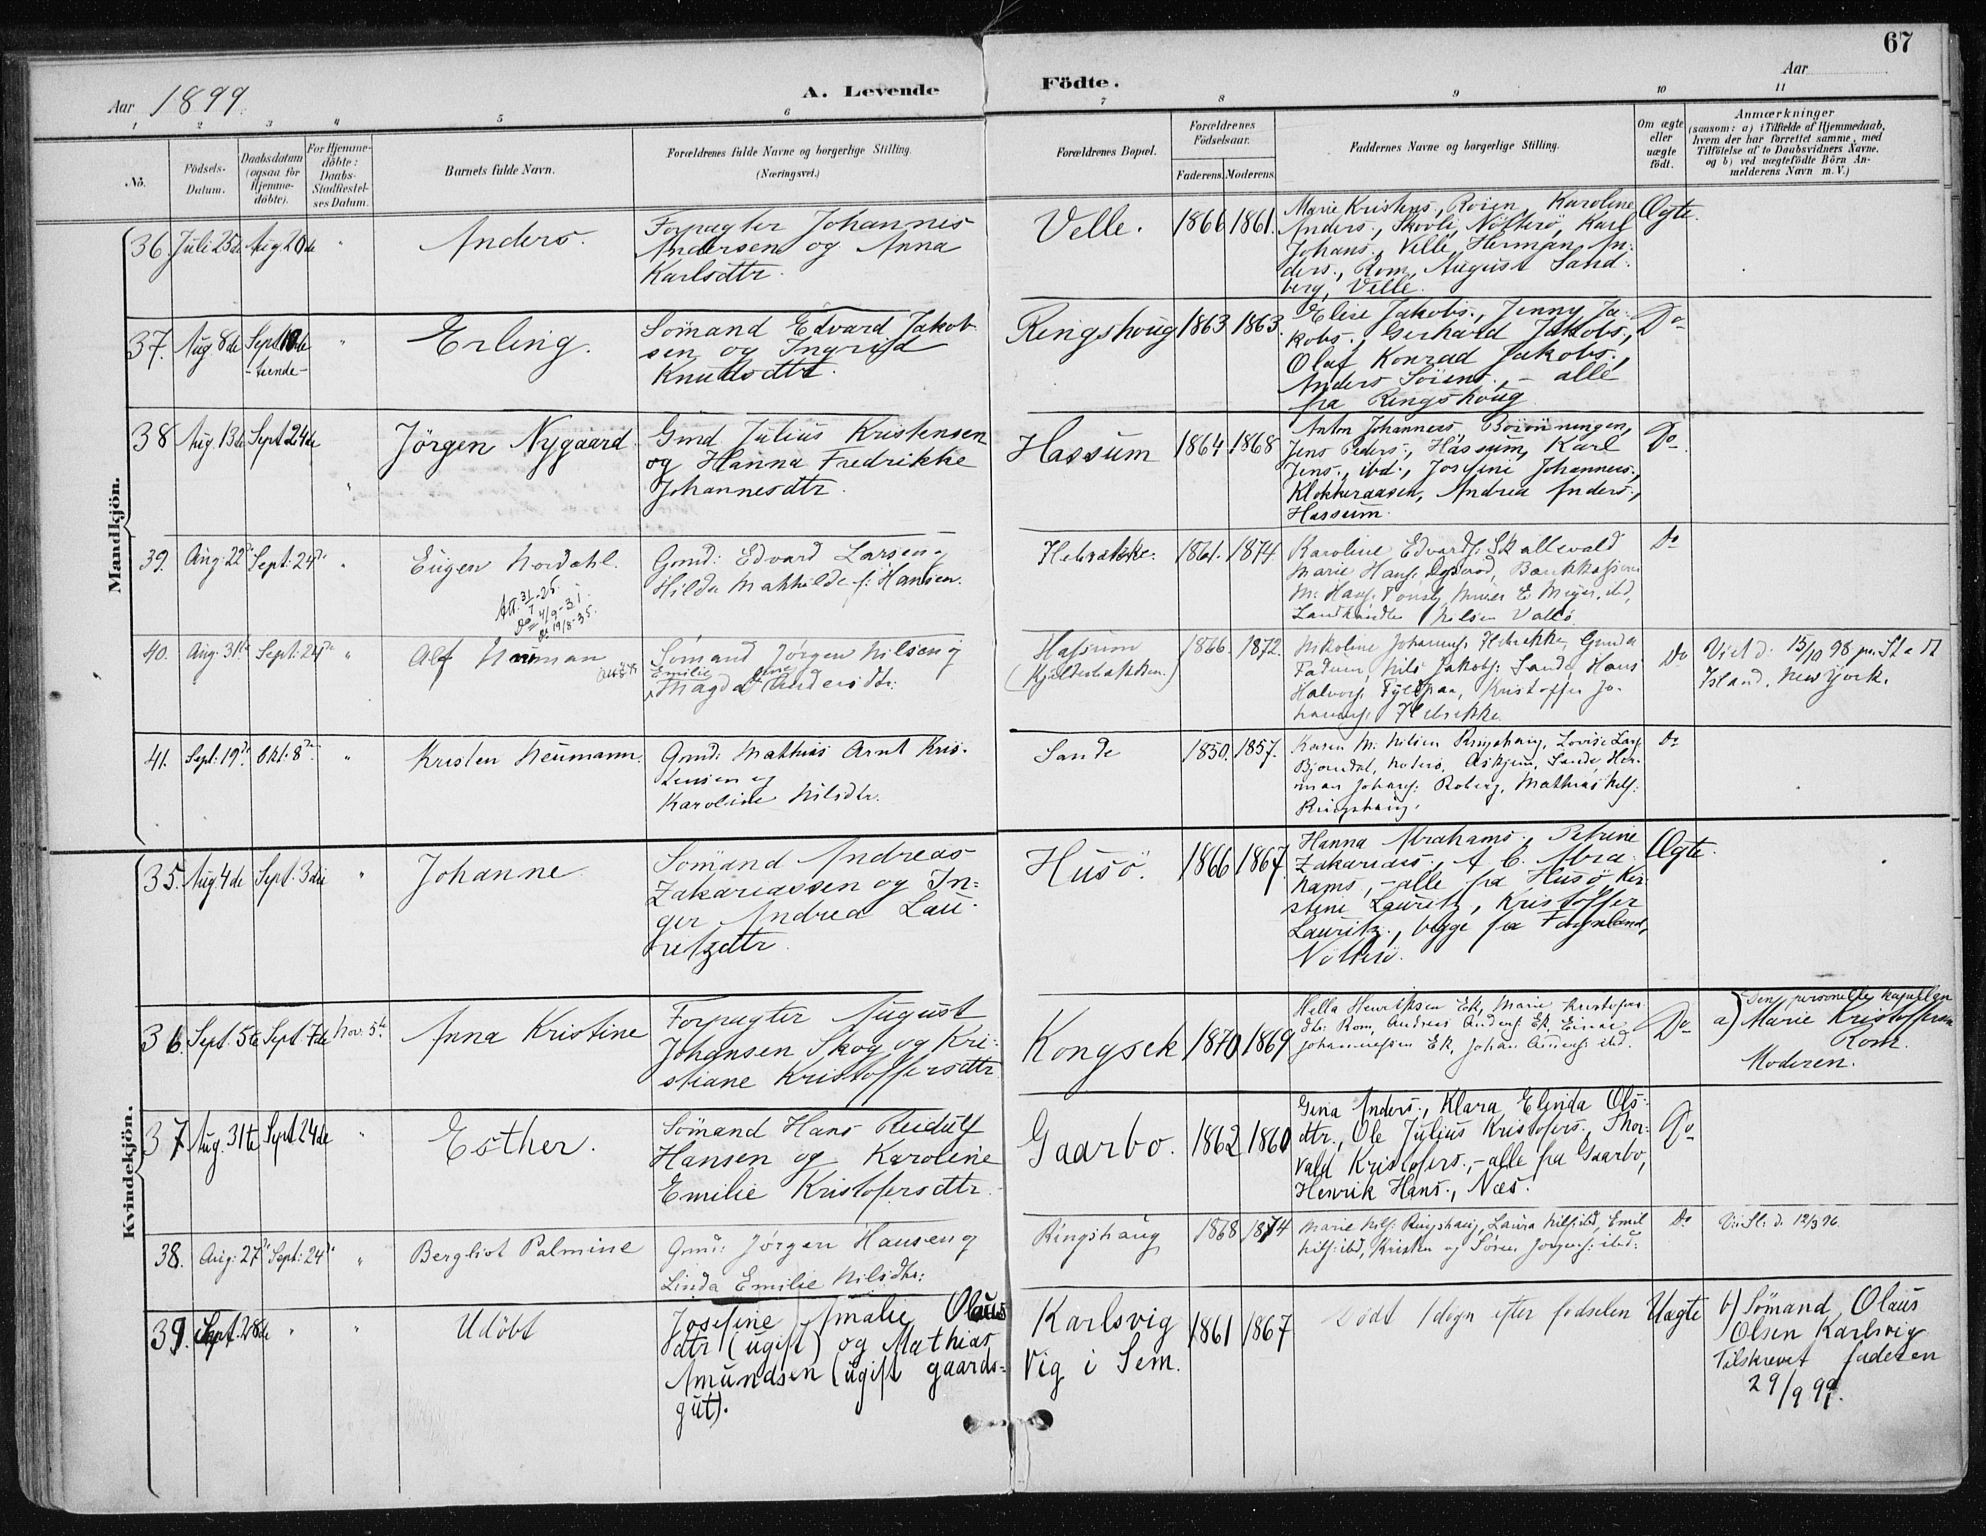 67
Aar 1899.
A. Levende
Födte.
Aar
1 2 3 4 5 6 7 8 9 10 11
No.
Födsels-Datum.
Daabsdatum (ogsaa for Hjemme-döbte).
For Hjemme-döbte: Daabs-Stadfæstel-ses Datum.
Barnets fulde Navn.
Forældrenes fulde Navne og borgerlige Stilling. (Næringsvei.)
Forældrenes Bopæl.
Forældrenes Födselsaar.
Faderens. Moderens.
Faddernes Navne og borgerlige Stilling.
Om ægte eller uægte födt.
Anmærkninger
(saasom: a) i Tilfælde af Hjemmedaab, hvem der har forrettet samme, med Tilföielse af to Daabsvidners Navne, og b) ved uægtefödte Börn An-melderens Navn m. V.)
Mandkjön.
36. Juli 25de Aug 20de "
Anders.
Forpagter Johannes
Andersen og Anna
Karlsdtr.
Velle. 1866 1861.
Marie Kristens., Roien, Karoline
Anders., Skovli, Nötterö, Karl
Johans., Velle, Herman An-
ders., Rom, August Sand-
berg, Velle.
Ægte.
37. Aug 8de Sept 10de "
-tiende-
Erling.
Sömand Edvard Jakob-
sen og Ingrid
Knudsdtr.
Ringshoug 1863 1863.
Elise Jakobs., Jenny Ja-
kobs., Gerhard Jakobs.,
Olaf Konrad Jakobs.,
Anders Sörens., - alle
fra Ringshoug
Do
38 Aug. 13de Sept 24de "
Jörgen Nygaard
Gmd Julius Kristensen
og Hanna Fredrikke
Johannesdtr.
Hassum 1864 1868
Anton Johannes.
Jens Peders., Hassum, Karl
Jens., ibd., Josefine Johannes.,
Klokkeraasen, Andrea Anders.,
Hassum.
Do.
39. Aug: 22de Sept: 24de "
Eugen Nordahl.
Att. 31/7-25.
Do 4/9-31.
do 19/8-35.
Gmd: Edvard Larsen og
Hilda Mathilde f: Hansen.
1861. 1874
Karoline Edvards: Skallevald
Marie Hans.
Landhandler Nilsen Vallö
Do
40. Aug: 31te Sept: 24de "
Alf Neuman
Sömand Jörgen Nilsen og
Emilie
Magda Andersdtr:
Hassum
(Kjeldesbakken.)
1866. 1872.
Nikoline Johannes:
Nils Jakobs: Sande, Hans
Halvors: Kristoffer Jo-
hannes:
Do
Viet d: 15/10 98 paa
Island, New York.
41. Sept: 19de Okt: 8de "
Kristen Neumann.
Gmd: Mathias Arnt Kris-
tensen og
Karoline Nilsdtr.
Sande 1850. 1857.
Karen M: Nilsen Ringshaug, Lovise Lars:
Bjorndal, Askjem, Sande, Her-
man Johans: Roberg, Mathias Nils:
Ringshaug.
Do
Kvindekjön.
35. Aug 4de Sept. 3die "
Johanne
Sömand Andreas
Zakariassen og In-
ger Andrea Lau-
ritzdtr.
Husö. 1866 1867
Hanna Abrahams., Petrine
Zakarias., A C. Abra-
hams., - alle fra Husö Kir-
stine Lauritz., Kristoffer
Lauritz., begge fra Fagnland,
Nötterö.
Ægte
36. Sept. 5te Sept. 7de Nov. 5te
Anna Kristine
Forpagter August
Johansen Skog og Kri-
stiane Kristoffersdtr.
Kongsek 1870 1869
Hella Henriksen Ek, Marie Kristofers
dtr. Rom, Andreas Anders: Ek, Einar
Johannessen Ek, Johan Anders: ibd.
Do
a) Den personelle kapellan
Marie Kristoffersen
Rom.
Moderen.
37 Aug. 31te Sept 24de "
Esther.
Sömand Hans Reidulf
Hansen og Karoline
Emilie Kristofersdtr.
Gaarbo. 1862 1860
Gina Anders., Klara Elinda Ols-
dtr., Ole Julius Kristofers., Thor-
vald Kristofers., - alle fra Gaarbo,
Henrik Hans., Næs.
Do
38. Aug: 27de Sept: 24de "
Bergliot Palmine
Gmd: Jörgen Hansen og
Linda Emilie Nilsdtr:
Ringshaug 1868 1874
Marie Nils: Ringshaug, Laura Nils: ibd, Emil
Nils: ibd, Kristen og Sören Jörgens: ibd.
Do
d: 12/3 96.
39. Sept. 28de " "
Udöbt
Josefine Amalie Olaus
dtr (ugift) og Mathias
Amundsen (ugift gaards-
gut).
Karlsvig
Vig i Sem.
1861 1867
Dödt 1 dogn efter fødselen
Uægte
b) Sömand Olaus
Olsen Karlsvig
Tilskrevet faderen
29/9 99.